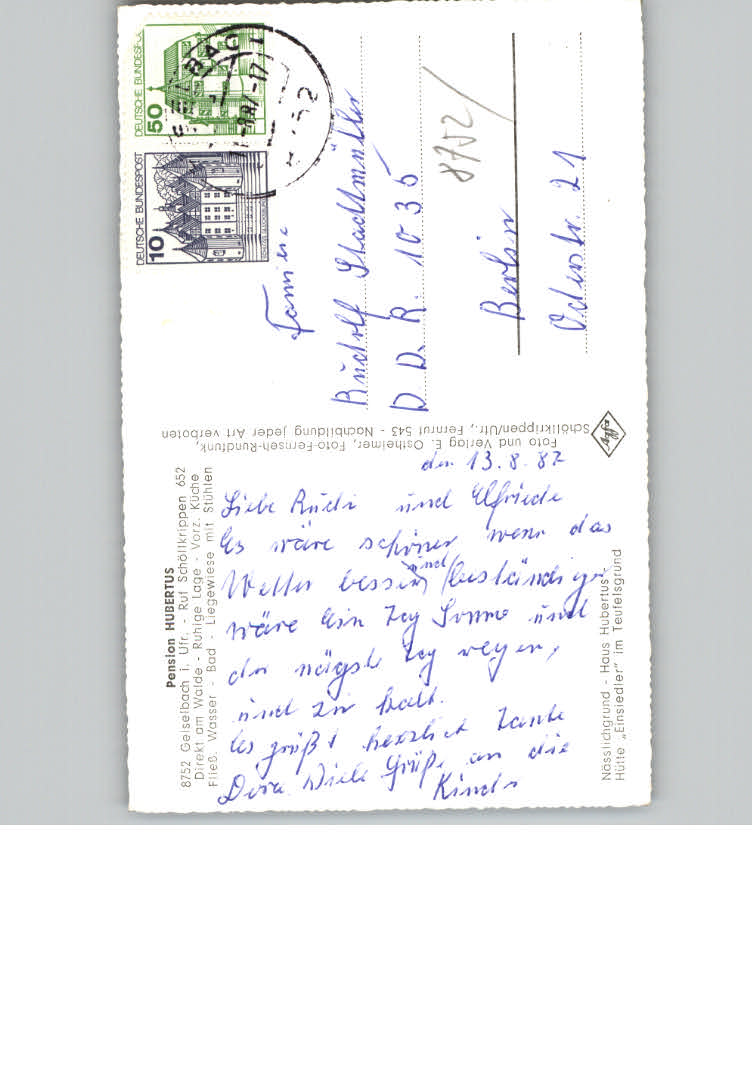 Pension HUBERTUS
8752 Geiselbach i. Ufr. - Ruf Schöllkrippen 652
Direkt am Walde - Ruhige Lage - Vorz. Küche
Fließ. Wasser - Bad - Liegewiese mit Stühlen
den 13.8.87
Liebe Rudi und Elfriede
Es wäre schöner wenn das
Wetter besser und beständiger
wäre ein Tag Sonne und
der nägste Tag regen,
und zu kalt.
Es grüßt herzlich Tante
Dora Viele Grüße an die
Kinder
Nässlichgrund - Haus Hubertus -
Hütte „Einsiedler" im Teufelsgrund
Foto und Verlag E. Ostheimer, Foto-Fernseh-Rundfunk,
Schöllkrippen/Ufr., Fernruf 543 - Nachbildung jeder Art verboten
Agfa
DEUTSCHE BUNDESPOST
10
DEUTSCHE BUNDESPOST
50
Familie
Rudolf Stadtmüller
D D. R. 1035
8752
Berlin
Oderstr. 21